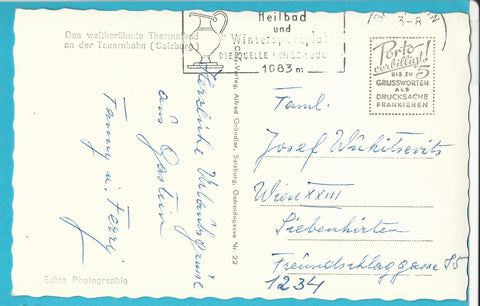 Das weltberühmte Thermalbad
an der Tauernbahn (Salzburg)
Heilbad
und
Wintersportplatz
1083 m
3-8
Porto
verbilligt!
BIS ZU 5
GRUSSWORTEN
ALS
DRUCKSACHE
FRANKIEREN
Herzliche Urlaubsgrüsse
aus Gastein
Fanny u. Ferry
Verlag, Alfred Gründler, Salzburg, Getreidegasse Nr. 22
Faml.
Josef Wukitsevits
Wien XXIII
Siebenhirten
Freundschlaggasse
1234
Echte Photographie